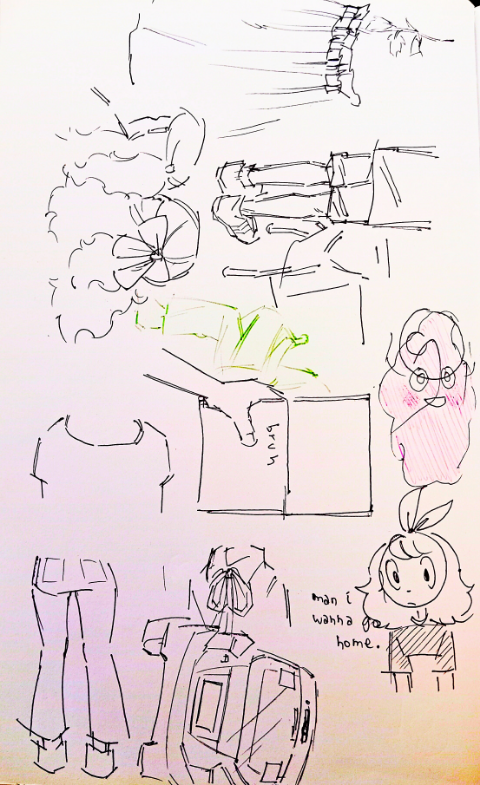 bruh
man i
wanna go
home.